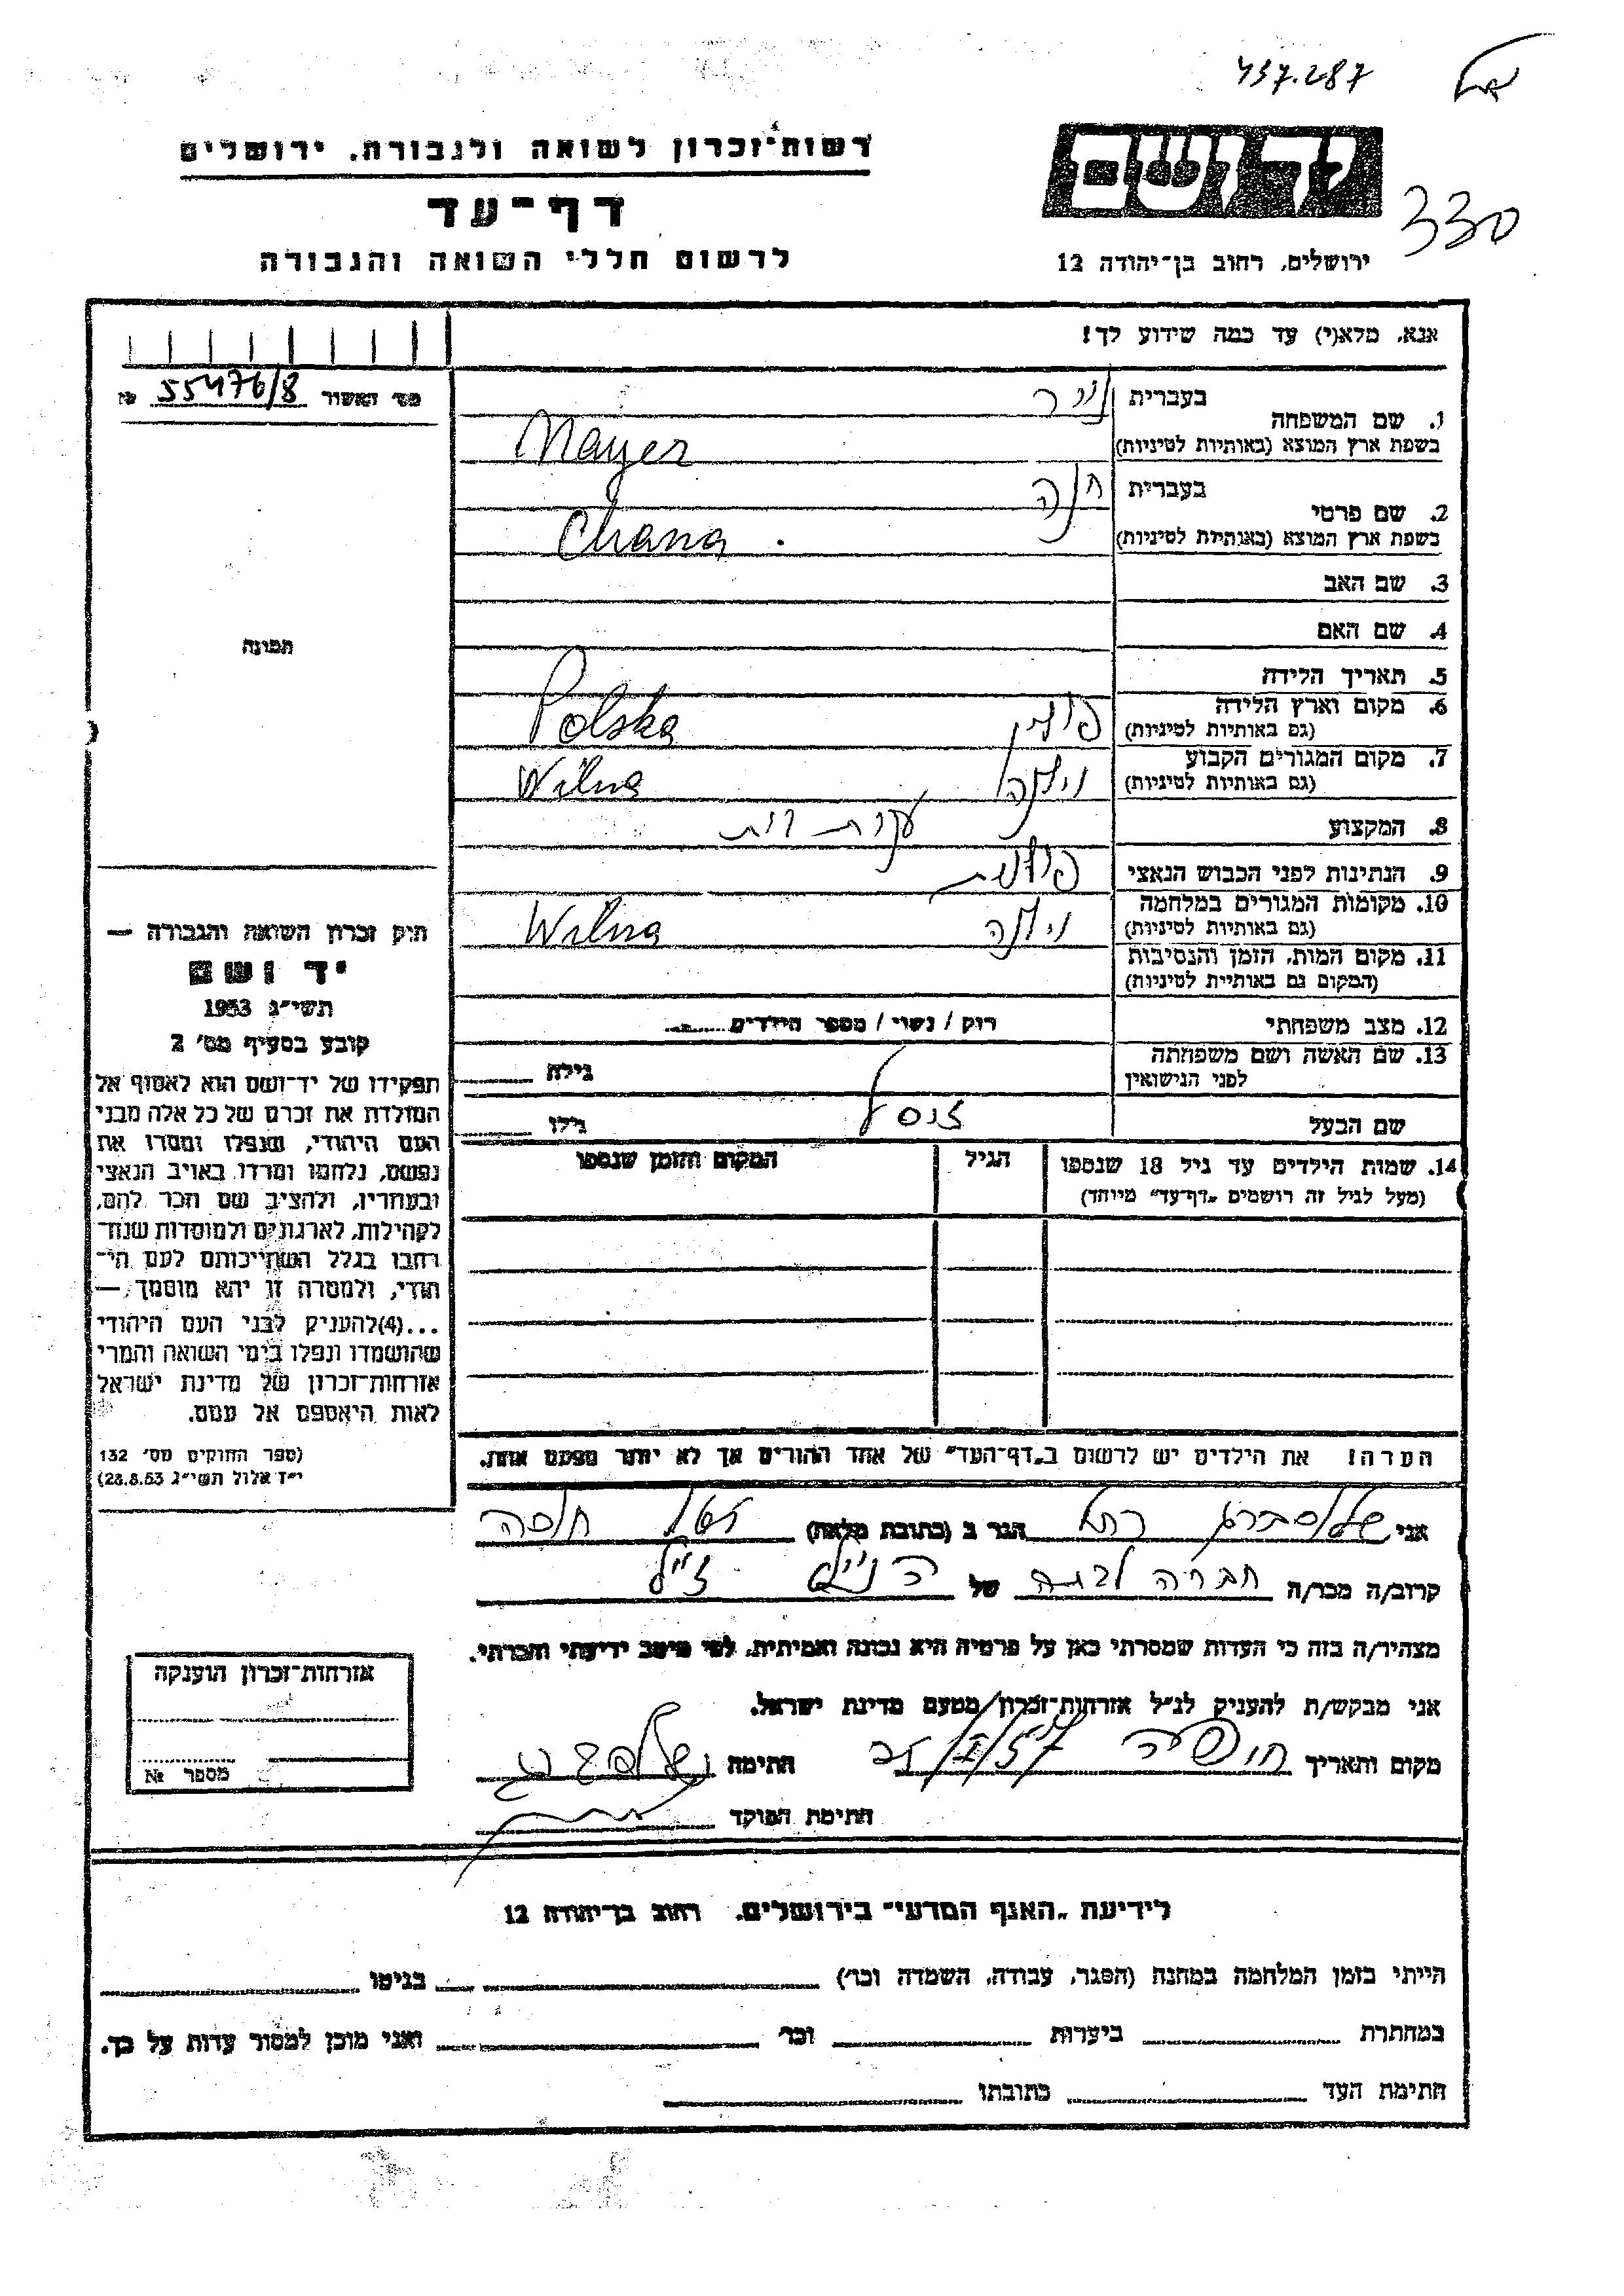 437.287
330
יד ושם
ירושלים, רחוב בן־יהודה 12
רשות־זכרון לשואה ולגבורה, ירושלים
דף־עד
לרשום חללי השואה והגבורה
אנא, מלא(י) עד כמה שידוע לך!
מס׳ האשור 55476/8 №
1. שם המשפחה
בעברית
בשפת ארץ המוצא (באותיות לטיניות) Mayer
2. שם פרטי
בעברית חנה
בשפת ארץ המוצא (באותיות לטיניות) Chana
3. שם האב
4. שם האם
5. תאריך הלידה
6. מקום וארץ הלידה
(גם באותיות לטיניות) פולין Polska
7. מקום המגורים הקבוע
(גם באותיות לטיניות) וילנה Wilna
8. המקצוע עקרת בית
9. הנתינות לפני הכבוש הנאצי פולנית
10. מקומות המגורים במלחמה
(גם באותיות לטיניות) וילנה Wilna
11. מקום המות, הזמן והנסיבות
(המקום גם באותיות לטיניות)
12. מצב משפחתי רווק / נשוי / מספר הילדים
13. שם האשה ושם משפחתה
לפני הנישואין
גילה
שם הבעל גילו
14. שמות הילדים עד גיל 18 שנספו
(מעל לגיל זה רושמים „דף־עד” מיוחד)
הגיל
המקום והזמן שנספו
הערה! את הילדים יש לרשום ב„דף־העד” של אחד ההורים אך לא יותר מפעם אחת.
תמונה
חוק זכרון השואה והגבורה —
יד ושם
תשי״ג 1953
קובע בסעיף מס׳ 2
תפקידו של יד־ושם הוא לאסוף אל
המולדת את זכרם של כל אלה מבני
העם היהודי, שנפלו ומסרו את
נפשם, נלחמו ומרדו באויב הנאצי
ובעוזריו, ולהציב שם וזכר להם,
לקהילות, לארגונים ולמוסדות שנח־
רבו בגלל השתייכותם לעם הי־
הודי, ולמטרה זו יהא מוסמך —
...(4)להעניק לבני העם היהודי
שהושמדו ונפלו בימי השואה והמרי
אזרחות־זכרון של מדינת ישראל
לאות היאספם אל עמם.
(ספר החוקים מס׳ 132
י״ד אלול תשי״ג 28.8.53)
אני הגר ב (כתובת מלאה)
קרוב/ה מכר/ה של ז״ל
מצהיר/ה בזה כי העדות שמסרתי כאן על פרטיה היא נכונה ואמיתית, לפי מיטב ידיעתי והכרתי.
אני מבקש/ת להעניק לנ״ל אזרחות־זכרון מטעם מדינת ישראל.
מקום ותאריך חתימה
חתימת הפוקד
אזרחות־זכרון הוענקה
מספר №
לידיעת „האגף המדעי” בירושלים, רחוב בן־יהודה 12
הייתי בזמן המלחמה במחנה (הסגר, עבודה, השמדה וכו׳) בגיטו
במחתרת ביערות וכו׳ ואני מוכן למסור עדות על כך.
חתימת העד כתובתו